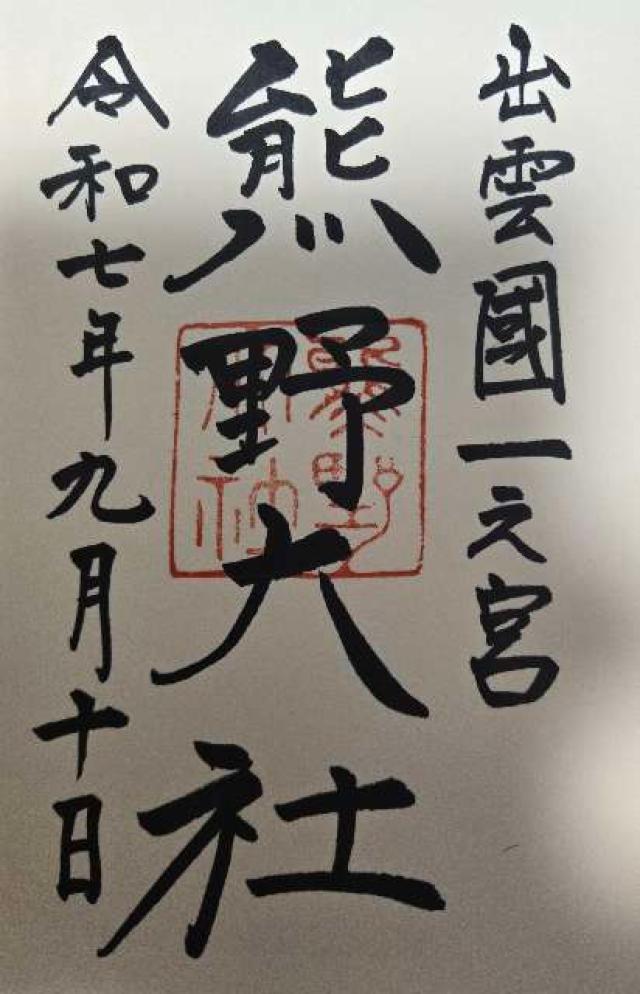 出雲國一之宮
熊野大社
令和七年九月十日